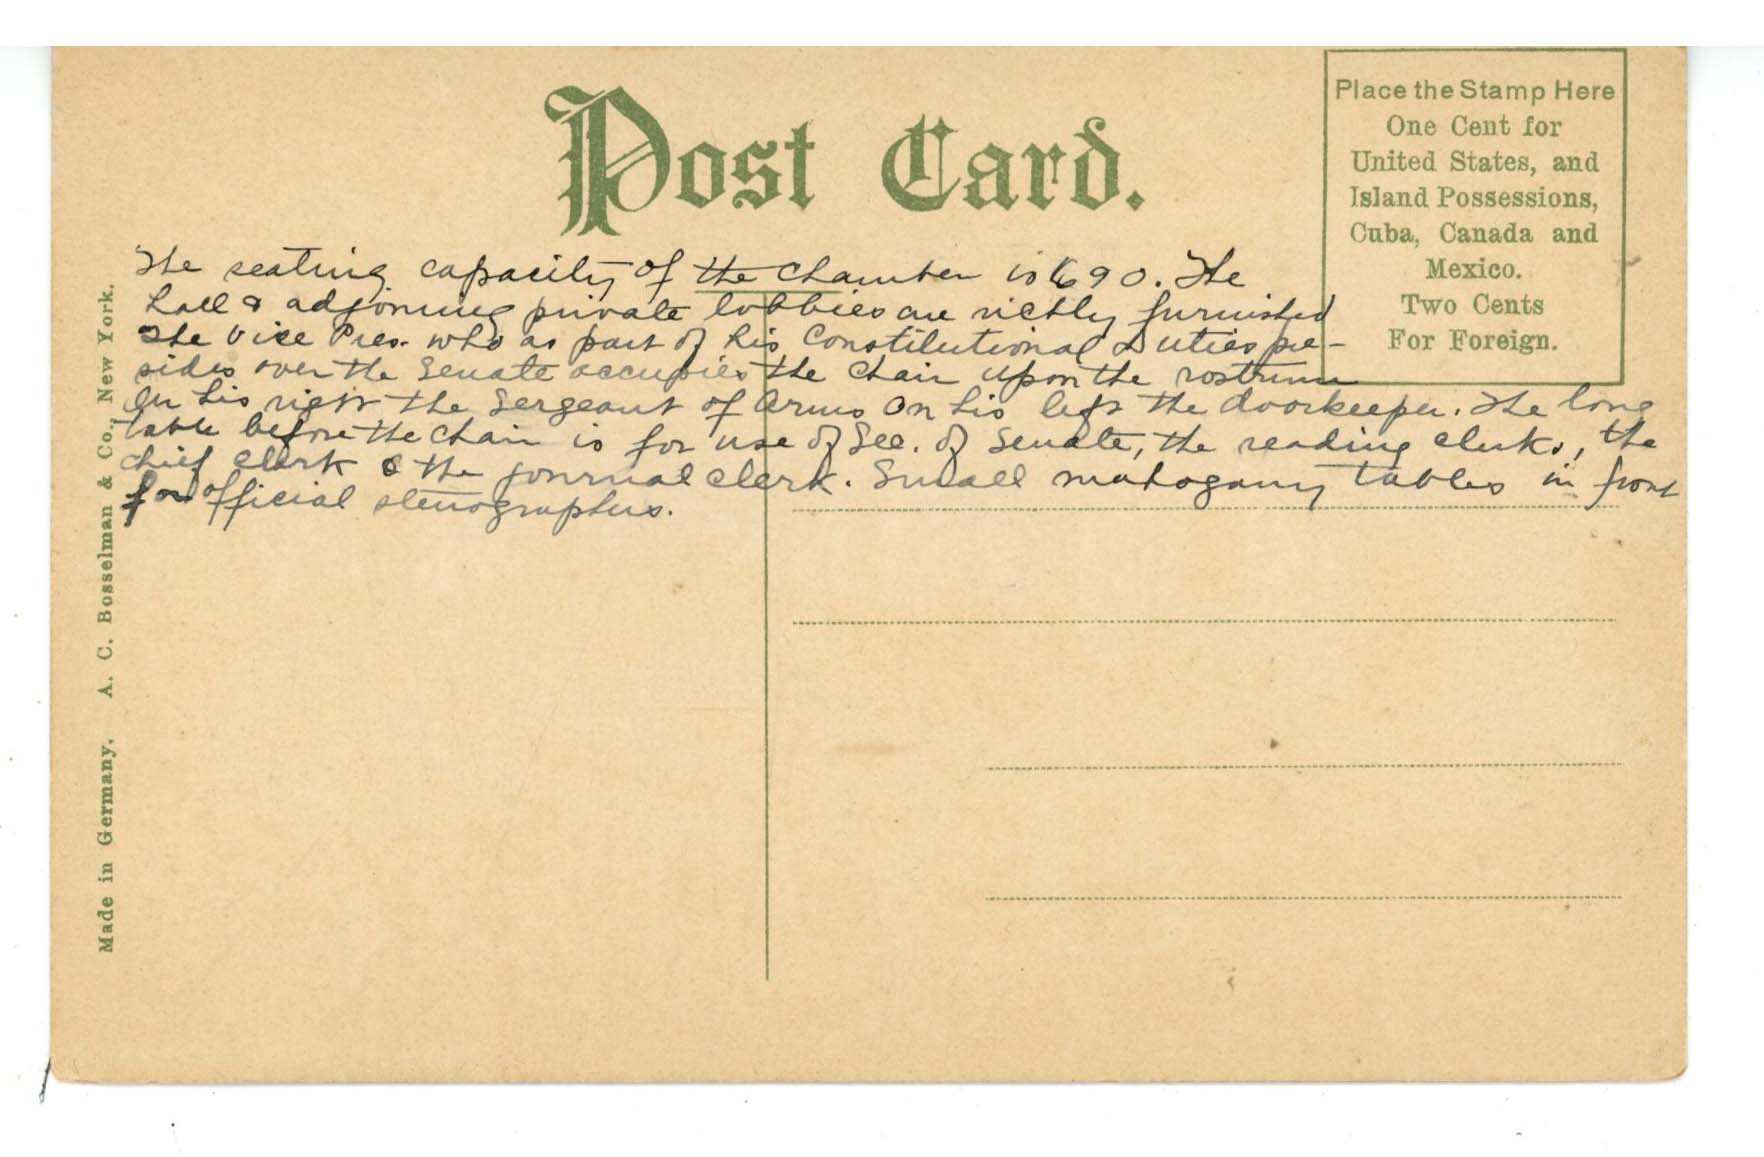 Post Card.
Place the Stamp Here
One Cent for
United States, and
Island Possessions,
Cuba, Canada and
Mexico.
Two Cents
For Foreign.
The seating capacity of the Chamber is 690. The
hall & adjoining private lobbies are richly furnished
The Vice Pres. who as part of his Constitutional Duties pre-
sides over the Senate occupies the Chair upon the rostrum
On his right the Sergeant of Arms On his left the doorkeeper. The long
table before the Chair is for use of Sec. of Senate, the reading clerks, the
chief clerk & the journal clerk. Small mahogany tables in front
for official stenographers.
Made in Germany. A. C. Bosselman & Co., New York.